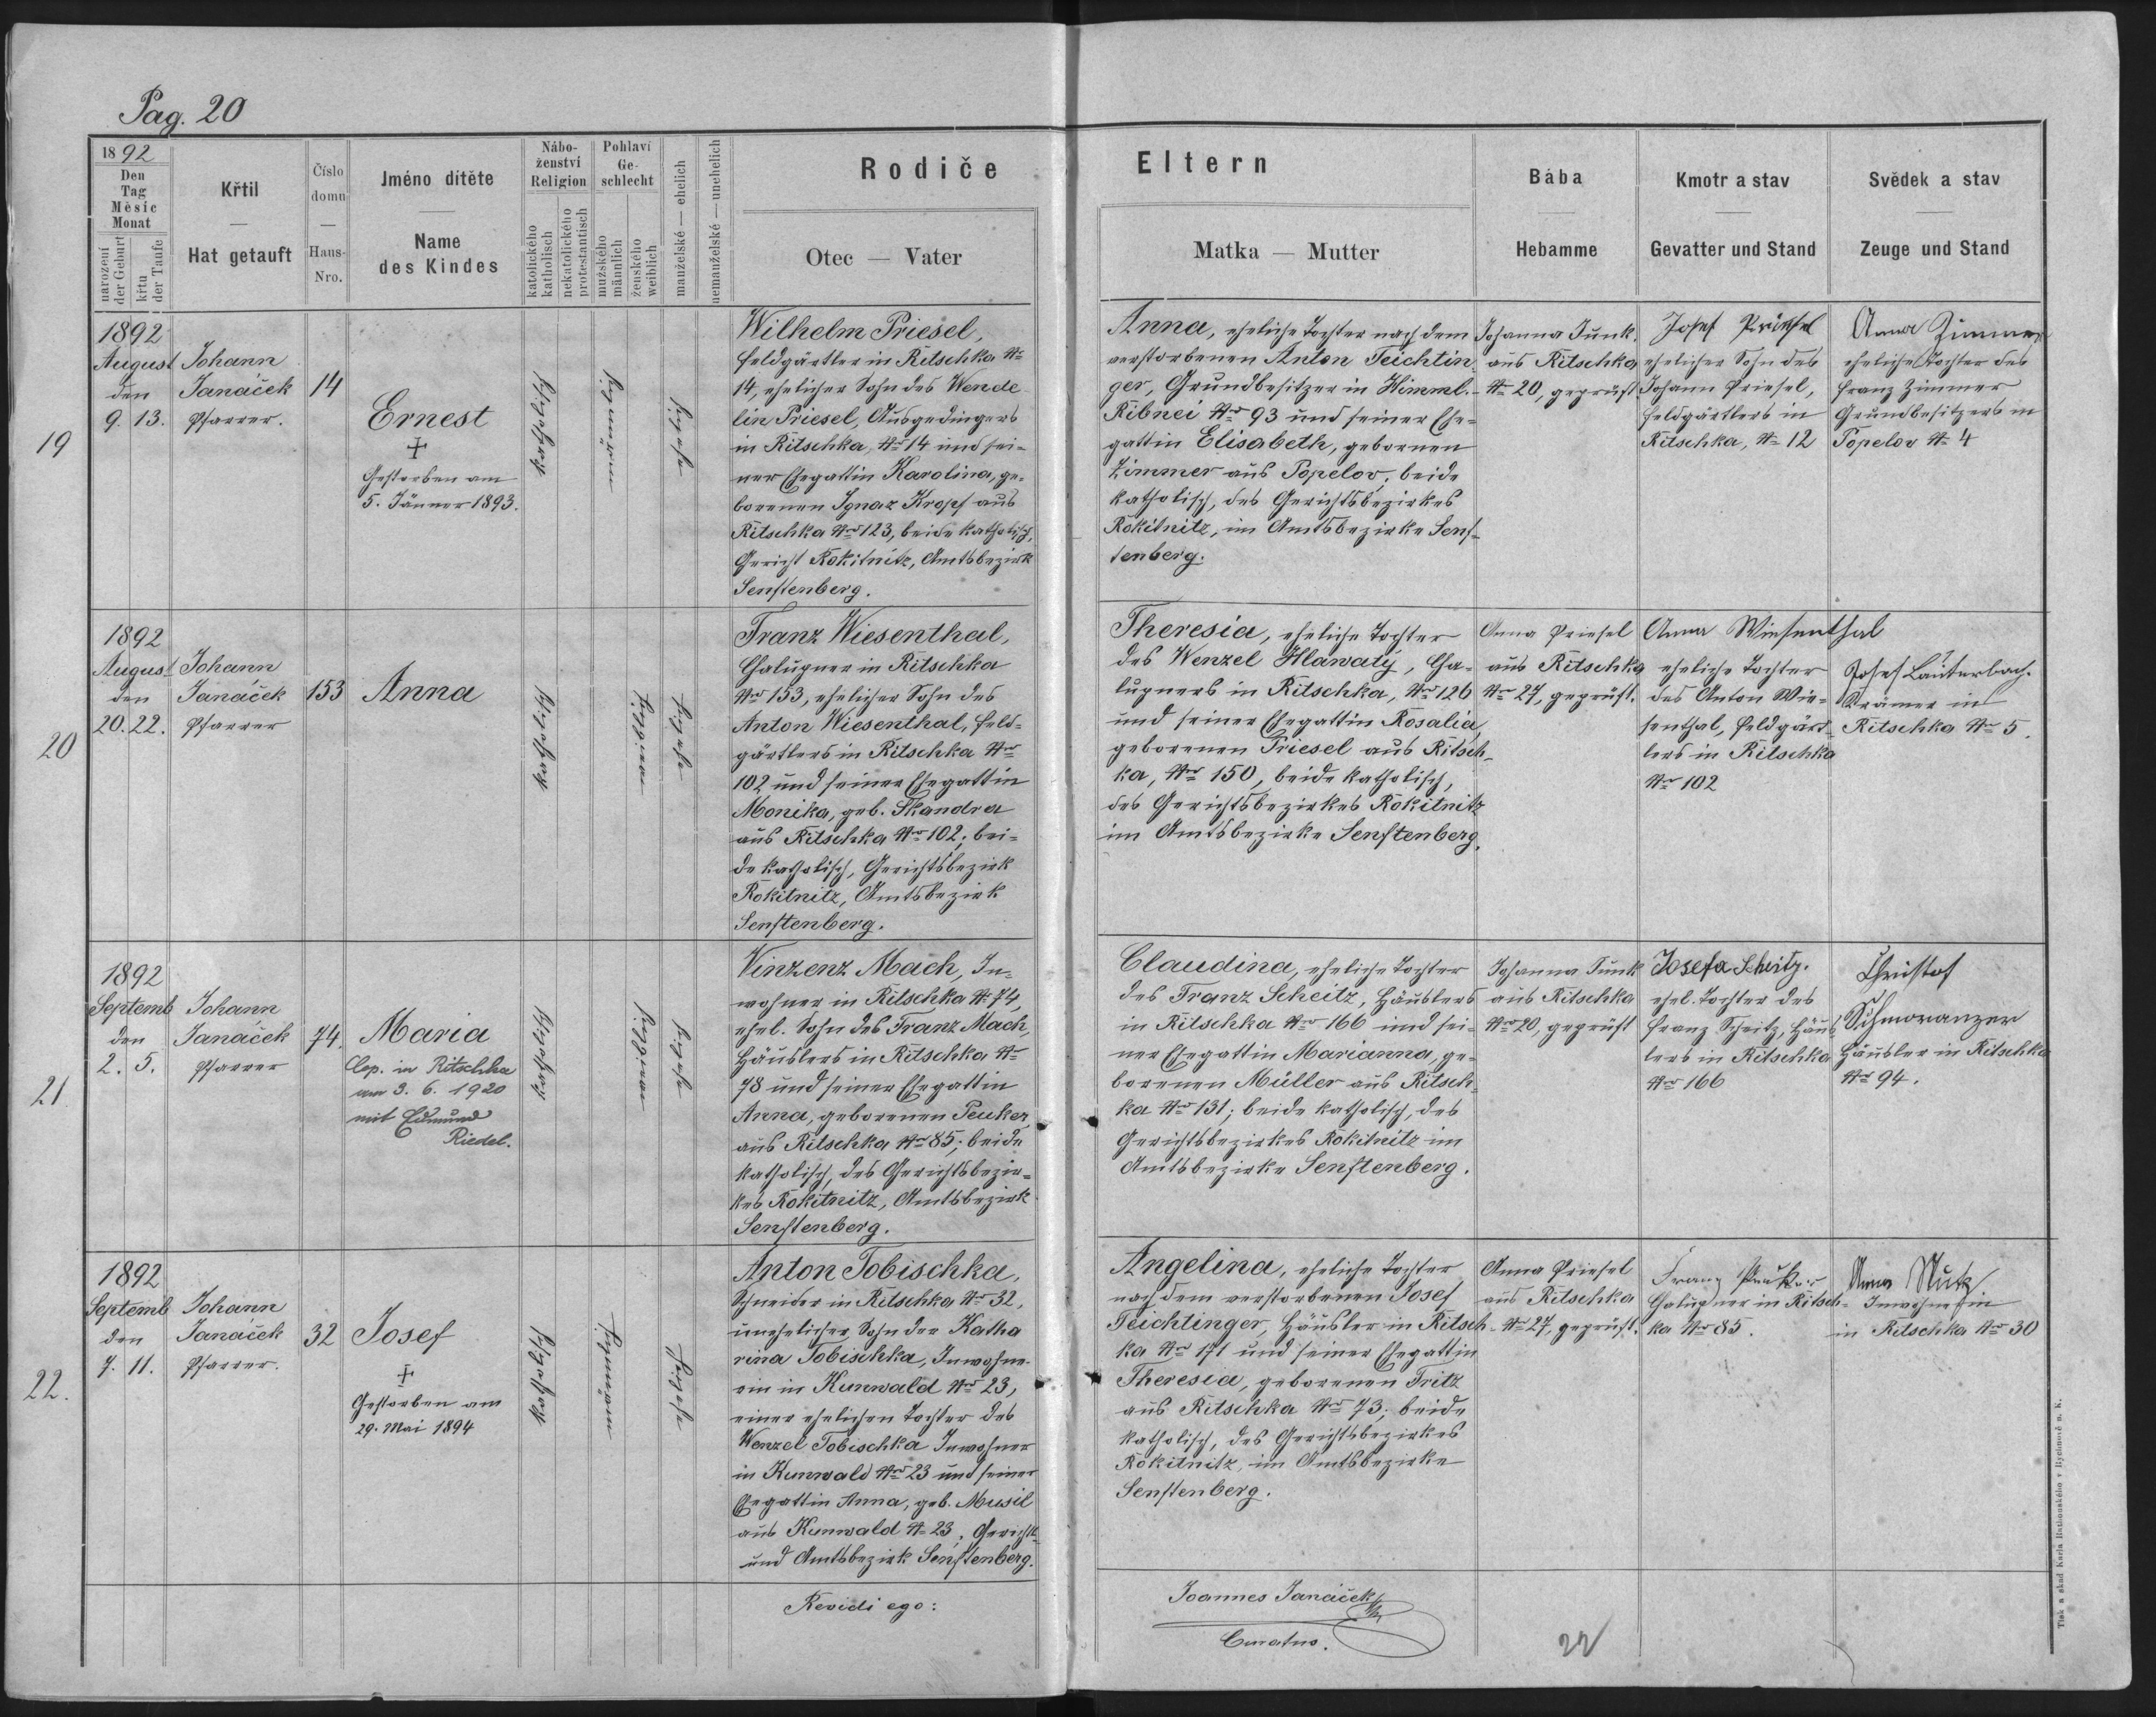 Pag. 20
1892
Den
Tag
Měsíc
Monat
narození
der Geburt
křtu
der Taufe
Křtil
Hat getauft
Číslo
domu
Haus-
Nro.
Jméno dítěte
Name
des Kindes
Nábo-
ženství
Religion
katolického
katholisch
nekatolického
protestantisch
Pohlaví
Ge-
schlecht
mužského
männlich
ženského
weiblich
manželské — ehelich
nemanželské — unehelich
Rodiče
Eltern
Otec — Vater
Matka — Mutter
Bába
Hebamme
Kmotr a stav
Gevatter und Stand
Svědek a stav
Zeuge und Stand
19
1892
August
den
9. 13.
Johann
Janáček
Pfarrer.
14
Ernest
+
Gestorben am
5. Jänner 1893.
katholisch
männlich
ehelich
Wilhelm Priesel,
Feldgärtler in Ritschka Nr
14, ehelicher Sohn des Wende
lin Priesel, Ausgedingers
in Ritschka, Nro 14 und sei-
ner Ehegattin Karolina, ge-
borenen Ignaz Kropf aus
Ritschka Nro 123, beide katholisch,
Gericht Rokitnitz, Amtsbezirk
Senftenberg.
Anna, eheliche Tochter nach dem
verstorbenen Anton Teichtin-
ger, Grundbesitzer in Himml.-
Ribnei Nro 93 und seiner Ehe-
gattin Elisabeth, gebornen
Zimmer aus Popelov, beide
katholisch, des Gerichtsbezirkes
Rokitnitz, im Amtsbezirke Senf-
tenberg.
Johanna Junk
aus Ritschka
Nr 20, geprüft.
Josef Priesel
ehelicher Sohn des
Johann Priesel,
Feldgärtlers in
Ritschka, Nr 12
Anna Zimmer
eheliche Tochter des
Franz Zimmer
Grundbesitzers in
Popelov Nr 4
20
1892
August
den
20. 22.
Johann
Janáček
Pfarrer
153
Anna
katholisch
weiblich
ehelich
Franz Wiesenthal,
Chalupner in Ritschka
Nro 153, ehelicher Sohn des
Anton Wiesenthal, Feld-
gärtlers in Ritschka Nro
102 und seiner Ehegattin
Monika, geb. Skandra
aus Ritschka Nro 102; bei-
de katholisch, Gerichtsbezirk
Rokitnitz, Amtsbezirk
Senftenberg.
Theresia, eheliche Tochter
des Wenzel Hlawatý, Cha-
lupners in Ritschka, Nro 126
und seiner Ehegattin Rosalia,
geborenen Priesel aus Ritsch-
ka, Nro 150, beide katholisch,
des Gerichtsbezirkes Rokitnitz
im Amtsbezirke Senftenberg.
Anna Priesel
aus Ritschka
Nr 27, geprüft.
Anna Wiesenthal
eheliche Tochter
des Anton Wie-
senthal, Feldgärt-
lers in Ritschka
Nro 102
Josef Lauterbach.
Krämer in
Ritschka Nr 5.
21
1892
Septemb
den
2. 5.
Johann
Janáček
Pfarrer
74.
Maria
Cop. in Ritschka
am 3. 6. 1920
mit Edmund
Riedel.
katholisch
weiblich
ehelich
Vinzenz Mach, In-
wohner in Ritschka Nr 74,
ehel. Sohn des Franz Mach
Häuslers in Ritschka Nr
78 und seiner Ehegattin
Anna, geborenen Peuker,
aus Ritschka Nro 85; beide
katholisch, des Gerichtsbezir-
kes Rokitnitz, Amtsbezirk
Senftenberg.
Claudina, eheliche Tochter
des Franz Scheitz, Häuslers
in Ritschka Nro 166 und sei-
ner Ehegattin Marianna, ge-
borenen Müller aus Ritsch-
ka Nro 131; beide katholisch, des
Gerichtsbezirkes Rokitnitz im
Amtsbezirke Senftenberg.
Johanna Junk
aus Ritschka
Nro 20, geprüft
Josefa Scheitz.
ehel. Tochter des
Franz Scheitz, Häus
lers in Ritschka
Nro 166
Christof
Schmoranzer
Häusler in Ritschka
Nro 94.
22.
1892
Septemb
den
7. 11.
Johann
Janáček
Pfarrer.
32
Josef
+
Gestorben am
29. Mai 1894
katholisch
männlich
ehelich
Anton Tobischka,
Schneider in Ritschka Nro 32,
unehelicher Sohn der Katha
rina Tobischka, Inwohne-
rin in Kunwald Nro 23,
einer ehelichen Tochter des
Wenzel Tobischka Inwohner
in Kunwald Nro 23 und seiner
Ehegattin Anna, geb. Musil
aus Kunwald Nr 23, Gerichts-
und Amtsbezirk Senftenberg.
Angelina, eheliche Tochter
nach dem verstorbenen Josef
Teichtinger, Häusler in Ritsch-
ka Nro 171 und seiner Ehegattin
Theresia, geborenen Fritz
aus Ritschka Nro 73; beide
katholisch, des Gerichtsbezirkes
Rokitnitz, im Amtsbezirke
Senftenberg.
Anna Priesel
aus Ritschka
Nr 27, geprüft.
Franz Peuker
Chalupner in Ritsch-
ka Nro 85.
Anna Nutz
Inwohnerin
in Ritschka Nro 30
Revidi ego:
Joannes Janáček
Curatus.
22
Tisk a sklad Karla Rathouského v Rychnově n. K.